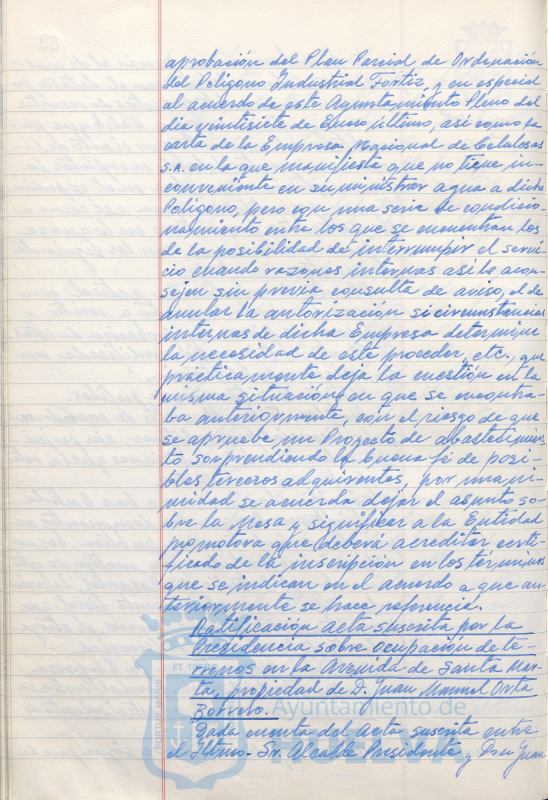 aprobación del Plan Parcial de Ordenación
del Polígono Industrial Fortiz, y en especial
al acuerdo de este Ayuntamiento Pleno del
dia vintisiete de Enero último, así como la
carta de la Empresa Nacional de Celulosas
S.A. en la que manifiesta que no tiene in-
conveniente en suministrar agua a dicho
Polígono, pero con una serie de condicio-
namiento entre los que se encuentran los
de la posibilidad de interrumpir el servi-
cio cuando razones internas así lo acon-
sejen sin previa consulta de aviso, el de
anular la autorización si circunstancias
internas de dicha Empresa determine
la necesidad de este proceder, etc., que
prácticamente deja la cuestión en la
misma situación en que se encontra-
ba anteriormente, con el riesgo de que
se apruebe un Proyecto de abastecimien-
to sorprendiendo la buena fé de posi-
bles terceros adquirentes, por unani-
midad se acuerda dejar el asunto so-
bre la Mesa y significar a la Entidad
promotora que deberá acreditar certi-
ficado de la inscripción en los términos
que se indican en el acuerdo a que an-
teriormente se hace referencia.
Ratificación acta suscrita por la
Presidencia sobre ocupación de te-
rrenos en la Avenida de Santa Mar-
ta, propiedad de D. Juan Manuel Orta
Borrero.
Dada cuenta del Acta suscrita entre
el Iltmo. Sr. Alcalde Presidente y Don Juan
Ayuntamiento de
HUELVA
PORTUS MARIS ET TERRAE